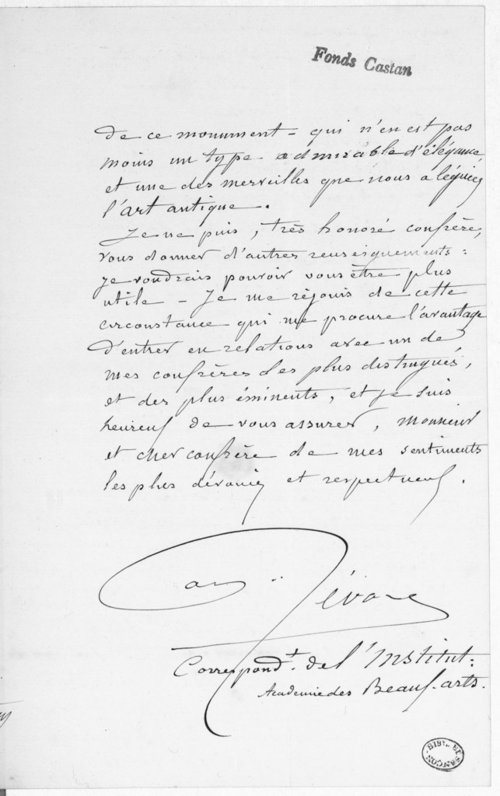 Fonds Castan
de ce monument - qui n'en est pas
moins un type admirable d'élégance
et une des merveilles que nous a léguées
l'art antique.
Je ne puis, très honoré confrère,
vous donner d'autres renseignements :
je voudrais pouvoir vous être plus
utile - Je me réjouis de cette
circonstance qui me procure l'avantage
d'entrer en relations avec un de
mes confrères des plus distingués,
et des plus éminents, et je suis
heureux de vous assurer, monsieur
et cher confrère de mes sentiments
les plus dévoués et respectueux.
Correspondt. de l'Institut.
Academie des Beaux-arts.